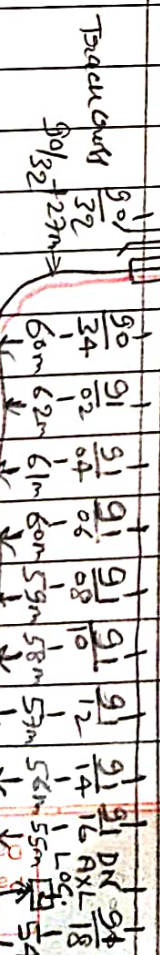 Track Chart
90/32 +27m
90/32
90/34 60m
91/02 62m
91/04 61m
91/06 60m
91/08 59m
91/10 58m
91/12 57m
91/14 56m
91/16 55m
DN AXL LOC
91/18 54